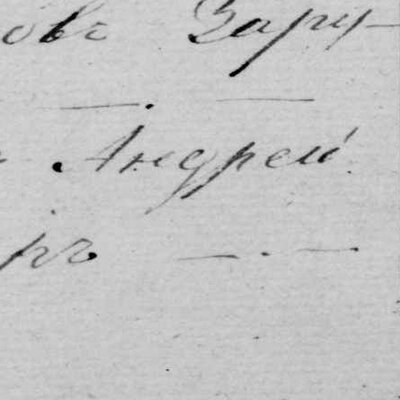 овъ Зару-
Андрей
ръ